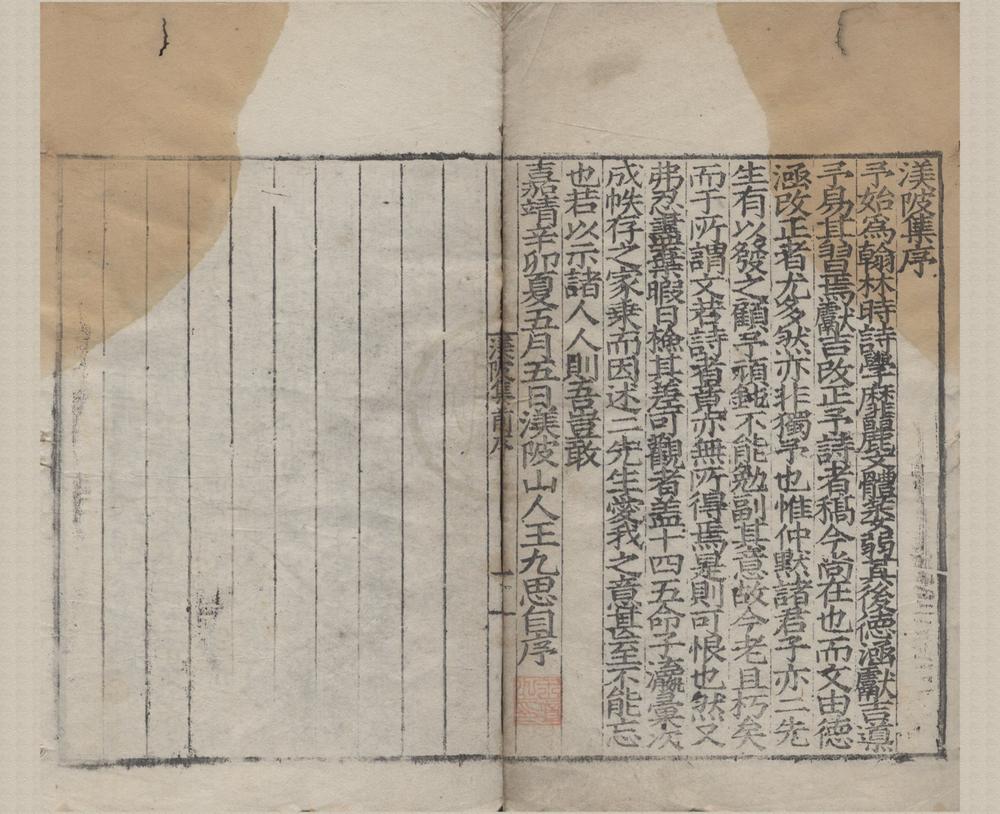 渼陂集序
予始為翰林時詩學靡麗文體萎弱其後德涵獻吉導
予易其習焉獻吉改正予詩者稿今尚在也而文由德
涵改正者尤多然亦非獨予也惟仲默諸君子亦二先
生有以發之顧予頑鈍不能勉副其意故今老且朽矣
而于所謂文若詩者竟亦無所得焉是則可恨也然又
弗忍盡棄暇日檢其差可觀者盖十四五命子瀛彙次
成帙存之家乗而因述二先生愛我之意甚至不能忘
也若以示諸人人則吾豈敢
嘉靖辛卯夏五月五日渼陂山人王九思自序
渼陂集前序
一